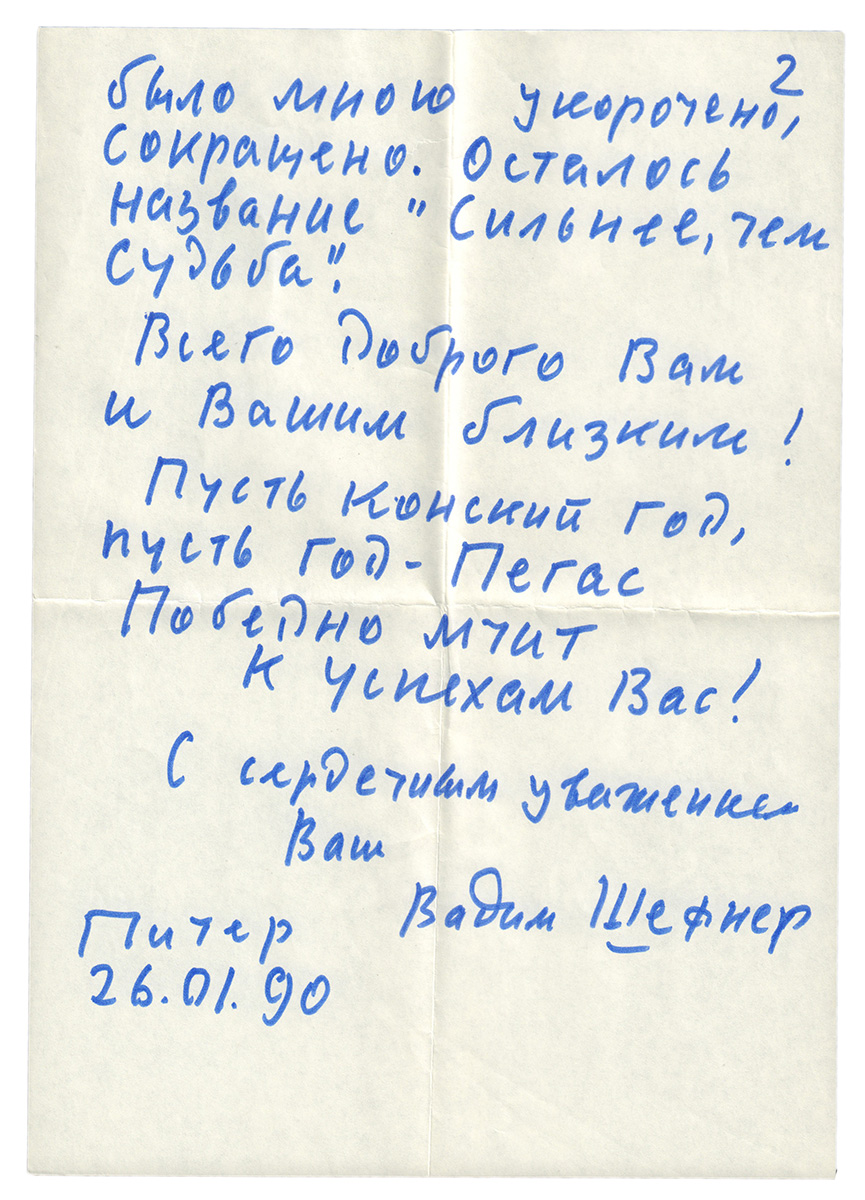 2
было мною укорочено,
сокращено. Осталось
название "Сильнее, чем
судьба".
Всего доброго Вам
и Вашим близким!
Пусть конский год,
пусть год - Пегас
Победно мчит
К успехам Вас!
С сердечным уважением
Ваш
Вадим Шефнер
Питер
26.01.90